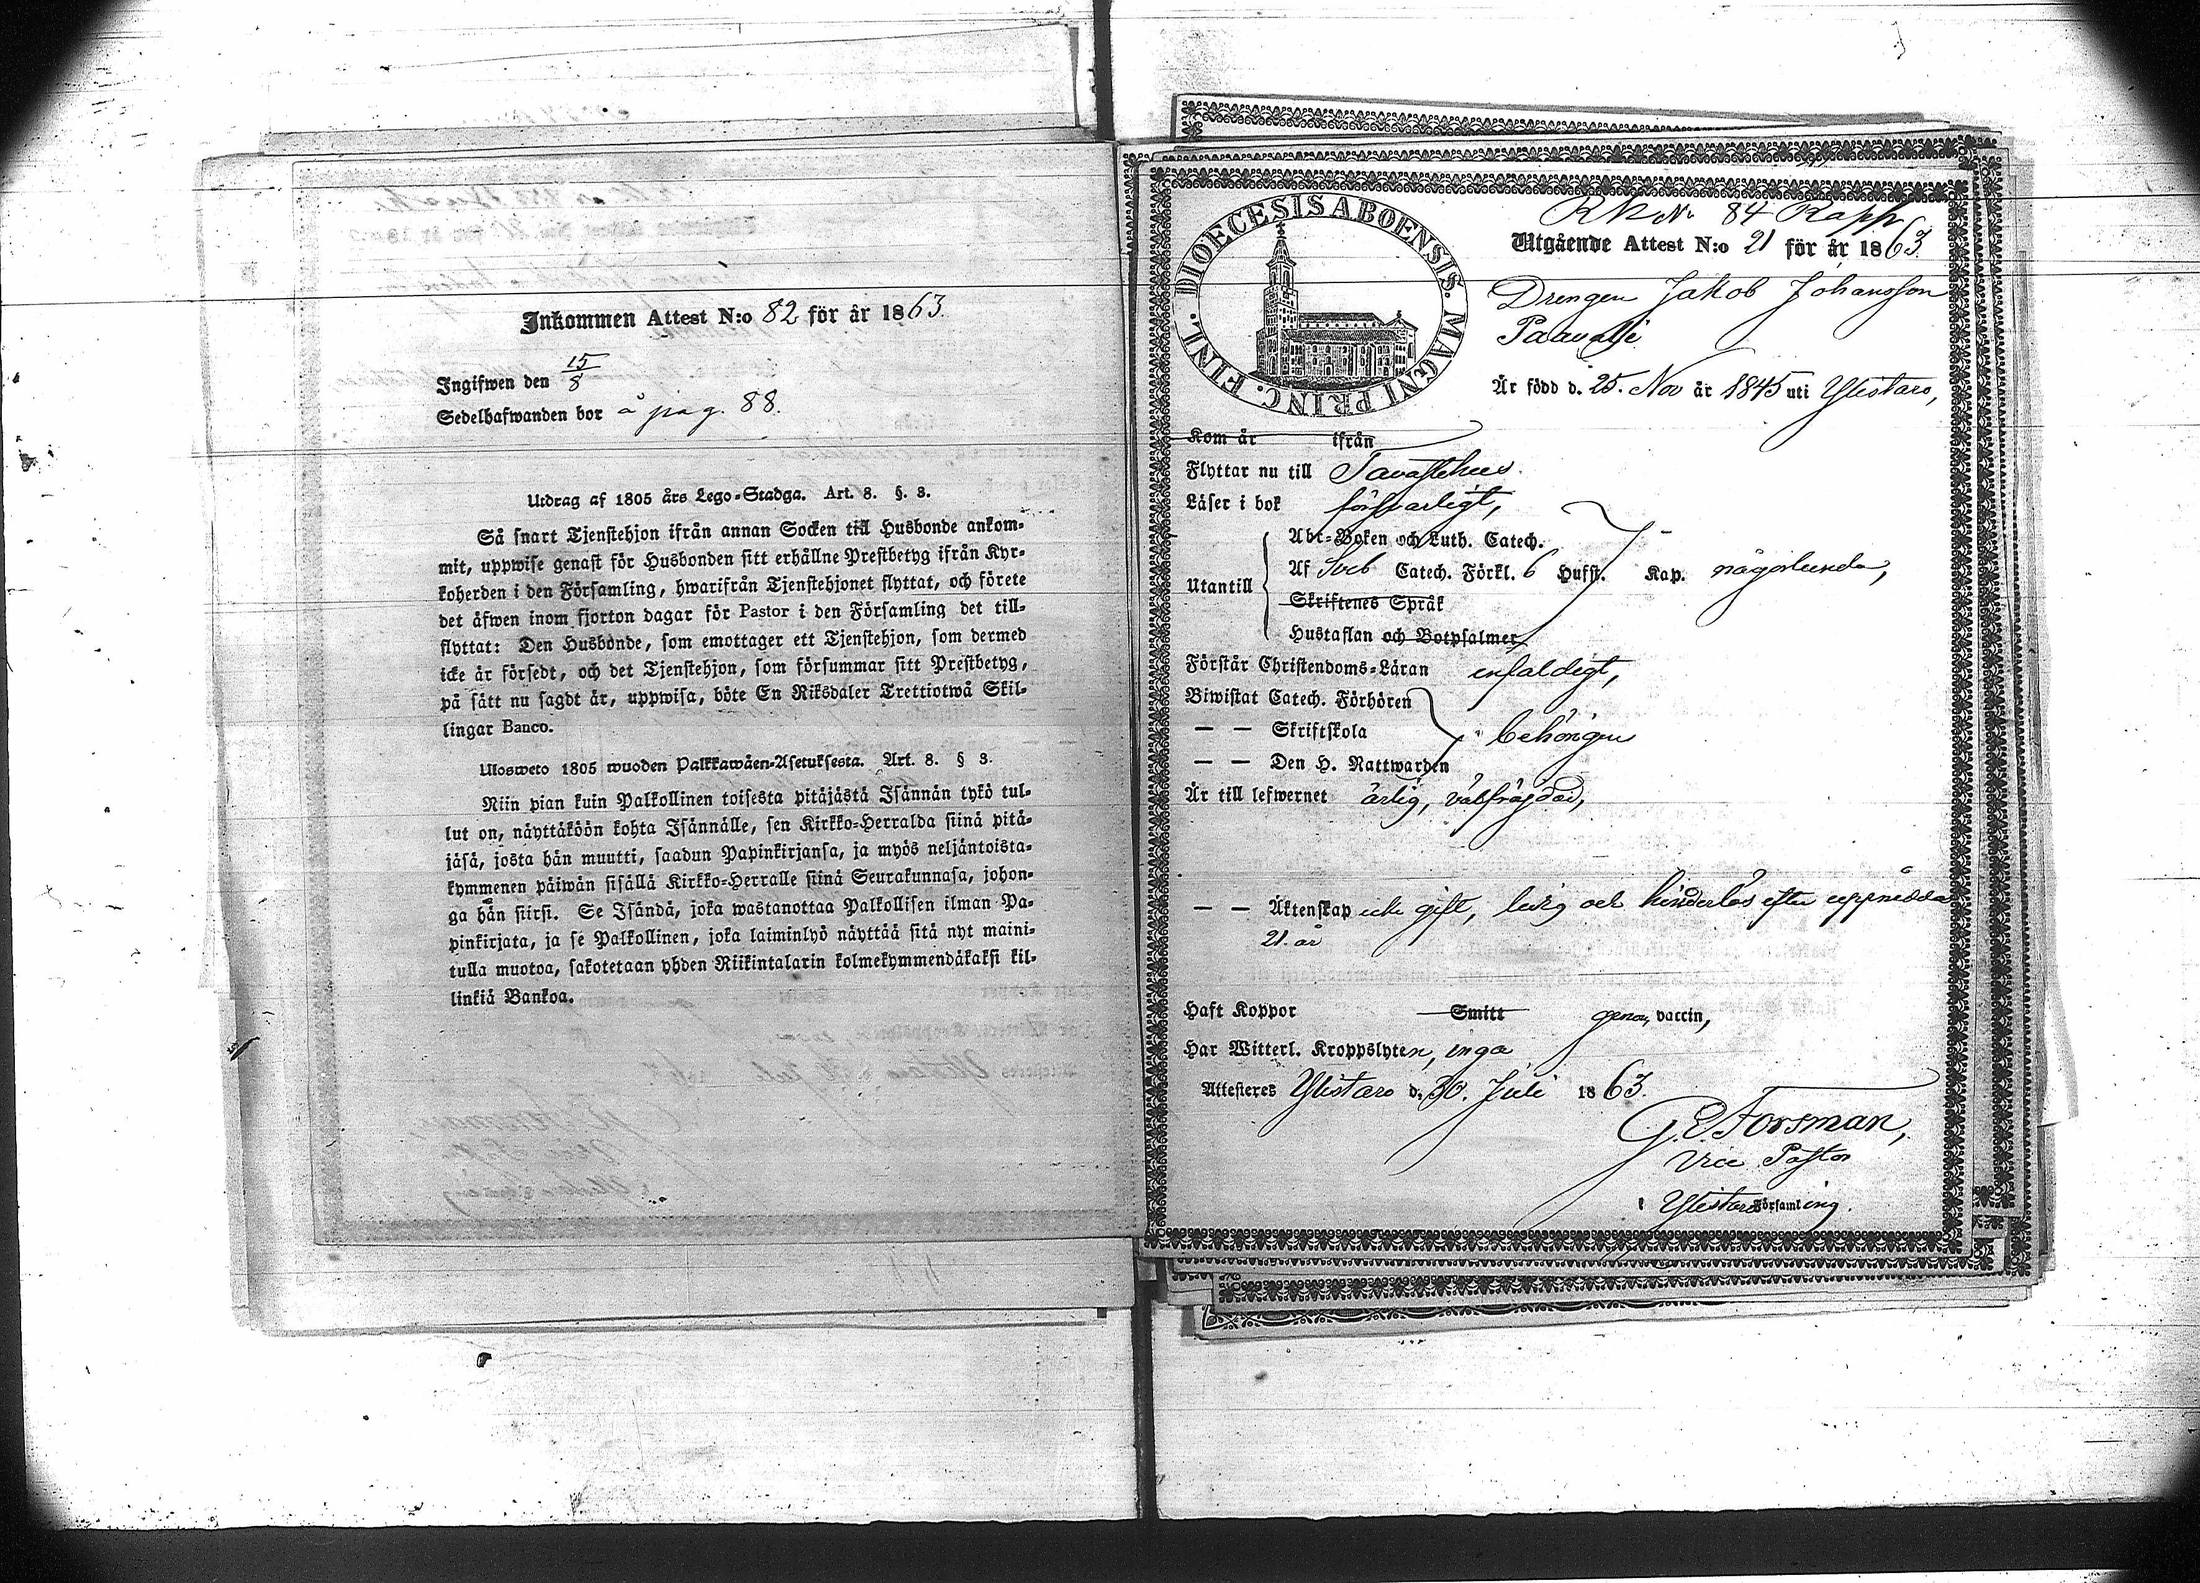 Inkommen Attest N:o 82 för år 1863.
Ingifwen den 15/8
Sedelhafwanden bor å pag. 88.
Utdrag af 1805 års Lego-Stadga. Art. 8. §. 3.
Så snart Tjenstehjon ifrån annan Socken till Husbonde ankom-
mit, uppwise genast för Husbonden sitt erhållne Prestbetyg ifrån Kyr-
koherden i den Församling, hwarifrån Tjenstehjonet flyttat, och förete
det äfwen inom fjorton dagar för Pastor i den Församling det till-
flyttat: Den Husbonde, som emottager ett Tjenstehjon, som dermed
icke är försedt, och det Tjenstehjon, som försummar sitt Prestbetyg,
på sätt nu sagdt är, uppwisa, böte En Riksdaler Trettiotwå Skil-
lingar Banco.
Ulosweto 1805 wuoden Palkkawäen-Asetuksesta. Art. 8. § 3.
Niin pian kuin Palkollinen toisesta pitäjästä Isännän tykö tul-
lut on, näyttäköön kohta Isännälle, sen Kirkko-Herralda siinä pitä-
jäsä, josta hän muutti, saadun Papinkirjansa, ja myös neljäntoista-
kymmenen päiwän sisällä Kirkko-Herralle siinä Seurakunnasa, johon-
ga hän siirsi. Se Isändä, joka wastanottaa Palkollisen ilman Pa-
pinkirjata, ja se Palkollinen, joka laiminlyö näyttää sitä nyt maini-
tulla muotoa, sakotetaan yhden Riikintalarin kolmekymmendäkaksi kil-
linkiä Bankoa.
DIOECESIS ABOENSIS. MAGNI PRINC. FINL.
84
Utgående Attest N:o 21 för år 1863
Drengen Jakob Johansson
Paavali
Är född d. 25. Nov år 1845 uti Ylistaro,
Kom år ifrån
Flyttar nu till Tavastehus.
Läser i bok försvarligt,
Abc-Boken och Luth. Catech.
Utantill Af Sveb Catech. Förkl. 6 Hufst. Kap. någorlunda,
Skriftenes Språk
Hustaflan och Botpsalmer
Förstår Christendoms-Läran enfaldigt,
Biwistat Catech. Förhören
— — Skriftskola behörigen
— — Den H. Nattwarden
Är till lefwernet ärlig, välfräjdad,
— — Äktenskap icke gift, ledig och hinderlös efter uppnådda
21 år
Haft Koppor Smitt genom vaccin,
Har Witterl. Kroppslyten, inga
Attesteres Ylistaro d. 30. Juli 1863.
G. E. Forsman,
Vice Pastor
i Ylistaro Församling.